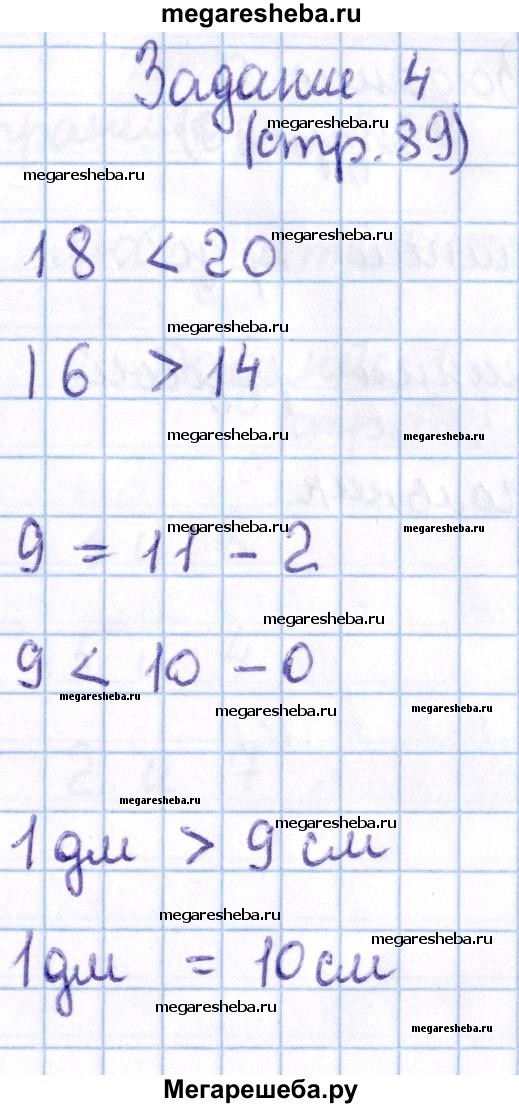 megaresheba.ru
Задание 4
megaresheba.ru
(стр. 89)
megaresheba.ru
megaresheba.ru
18 < 20
megaresheba.ru
16 > 14
megaresheba.ru
megaresheba.ru
megaresheba.ru
megaresheba.ru
9 = 11 - 2
megaresheba.ru
9 < 10 - 0
megaresheba.ru
megaresheba.ru
megaresheba.ru
megaresheba.ru
megaresheba.ru
1 дм > 9 см
megaresheba.ru
megaresheba.ru
1 дм = 10 см
megaresheba.ru
megaresheba.ru
Мегарешеба.ру